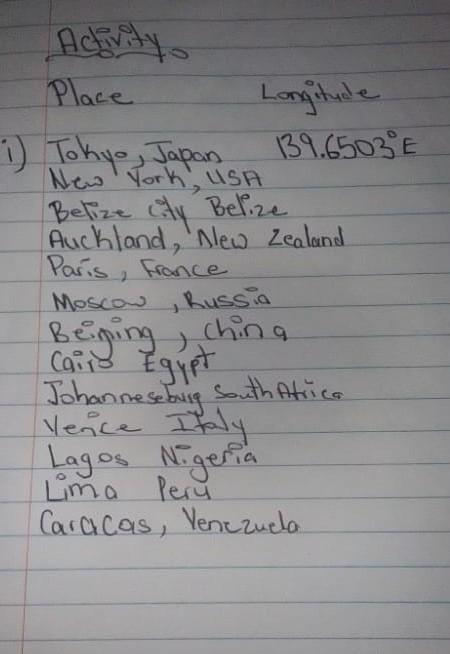 Activity
Place Longitude
i) Tokyo, Japan 139.6503°E
New York, USA
Belize City Belize
Auckland, New Zealand
Paris, France
Moscow, Russia
Beijing, China
Cairo Egypt
Johanneseburg South Africa
Venice Italy
Lagos Nigeria
Lima Peru
Caracas, Venezuela